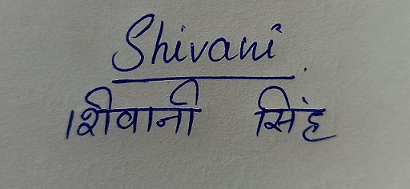 Shivani
शिवानी सिंह